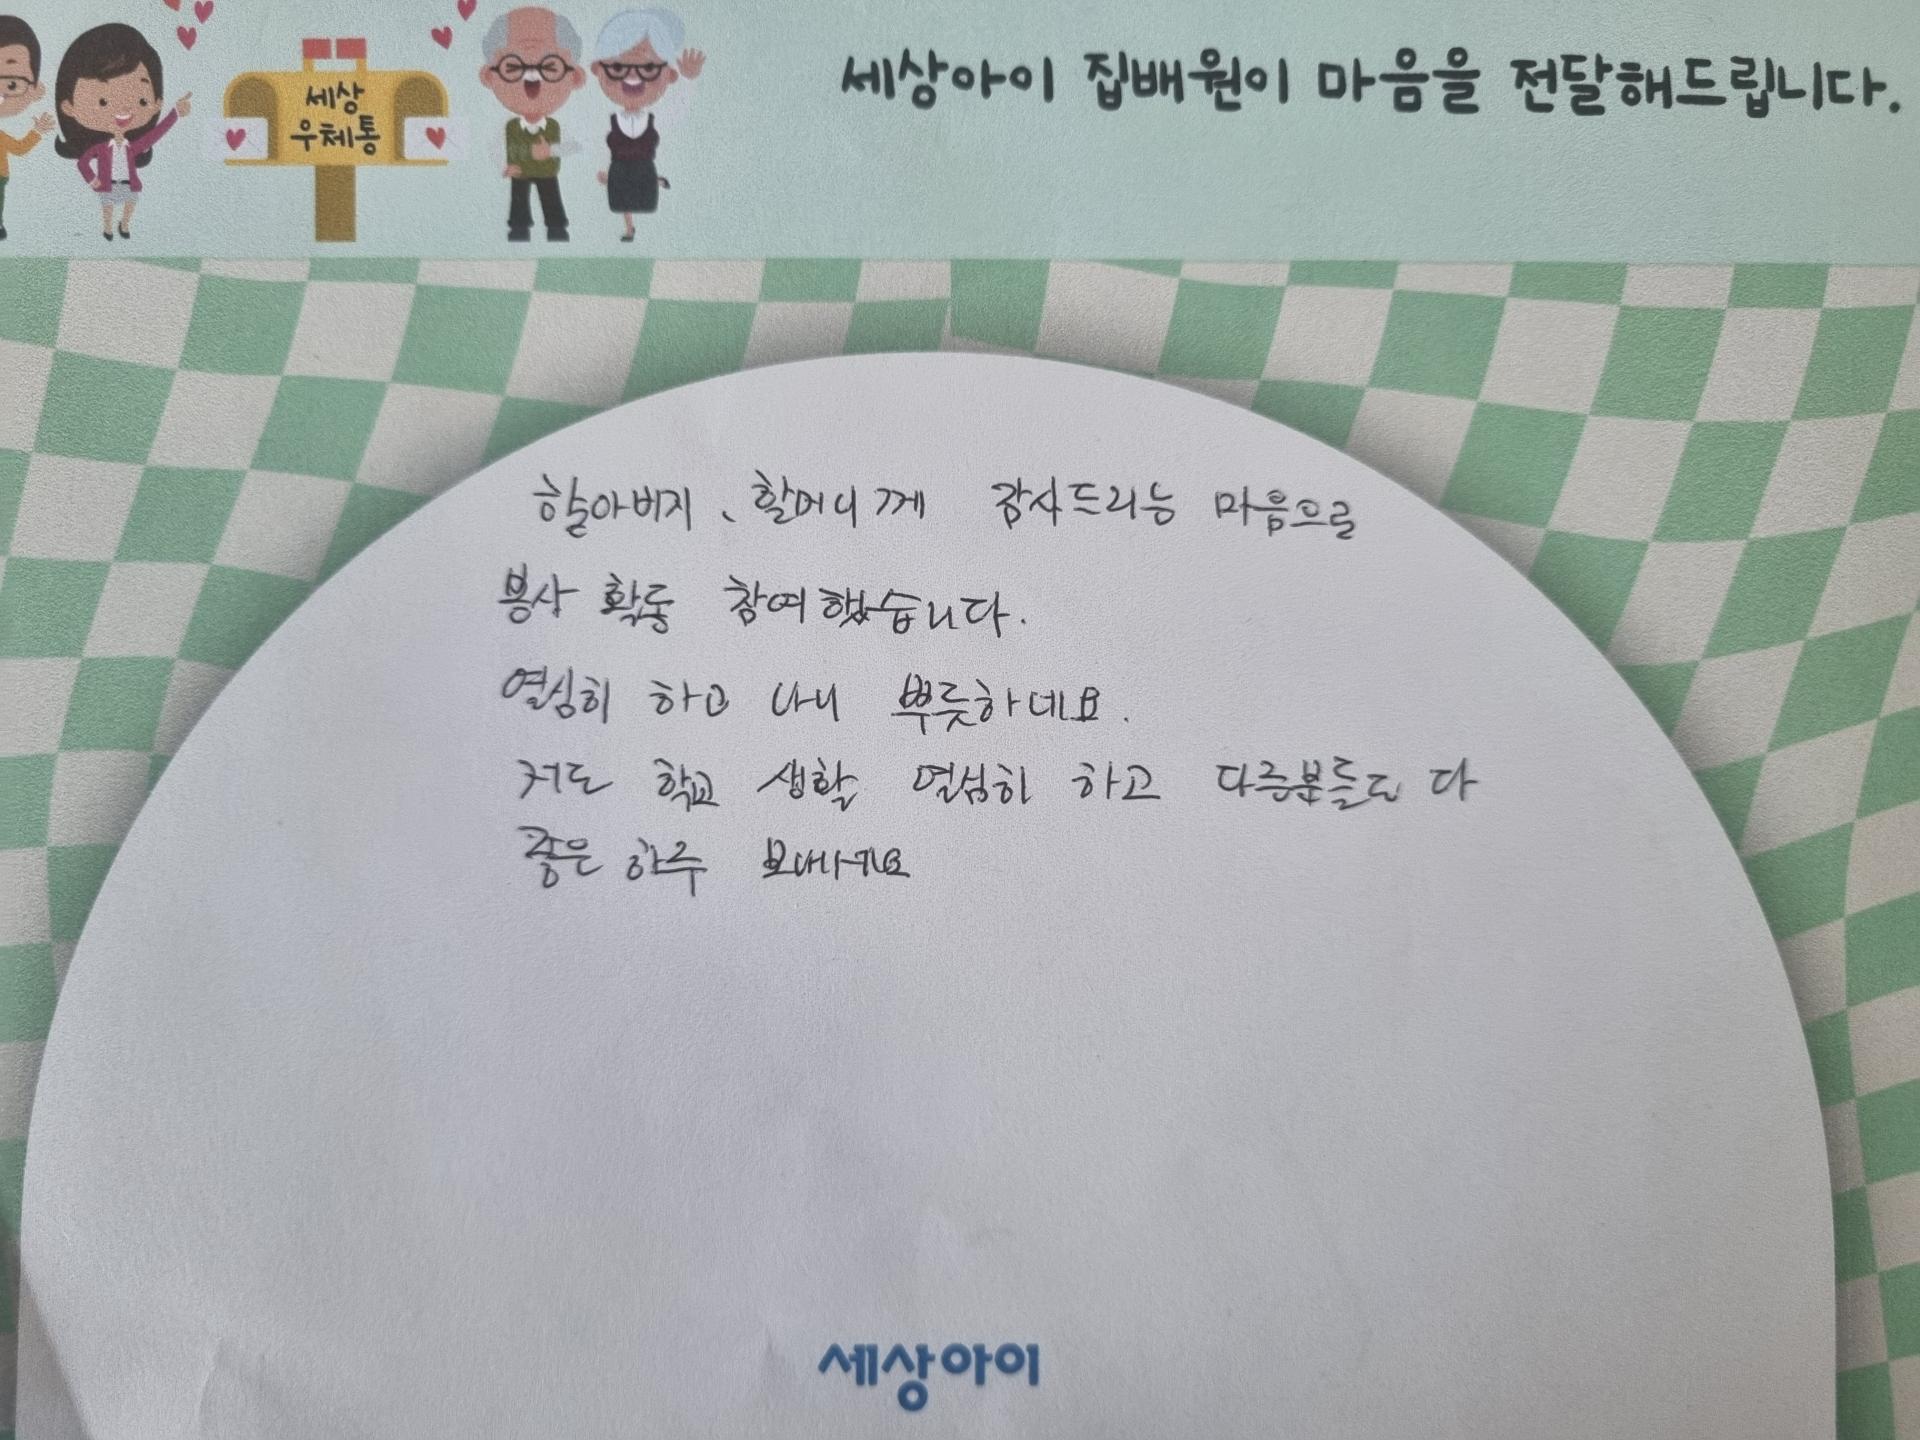 세상아이 집배원이 마음을 전달해드립니다.
세상
우체통
할아버지、할머니께 감사드리는 마음으로
봉사 활동 참여했습니다.
열심히 하고 나니 뿌듯하네요.
저도 학교 생활 열심히 하고 다른분들도 다
좋은 하루 보내시기요
세상아이